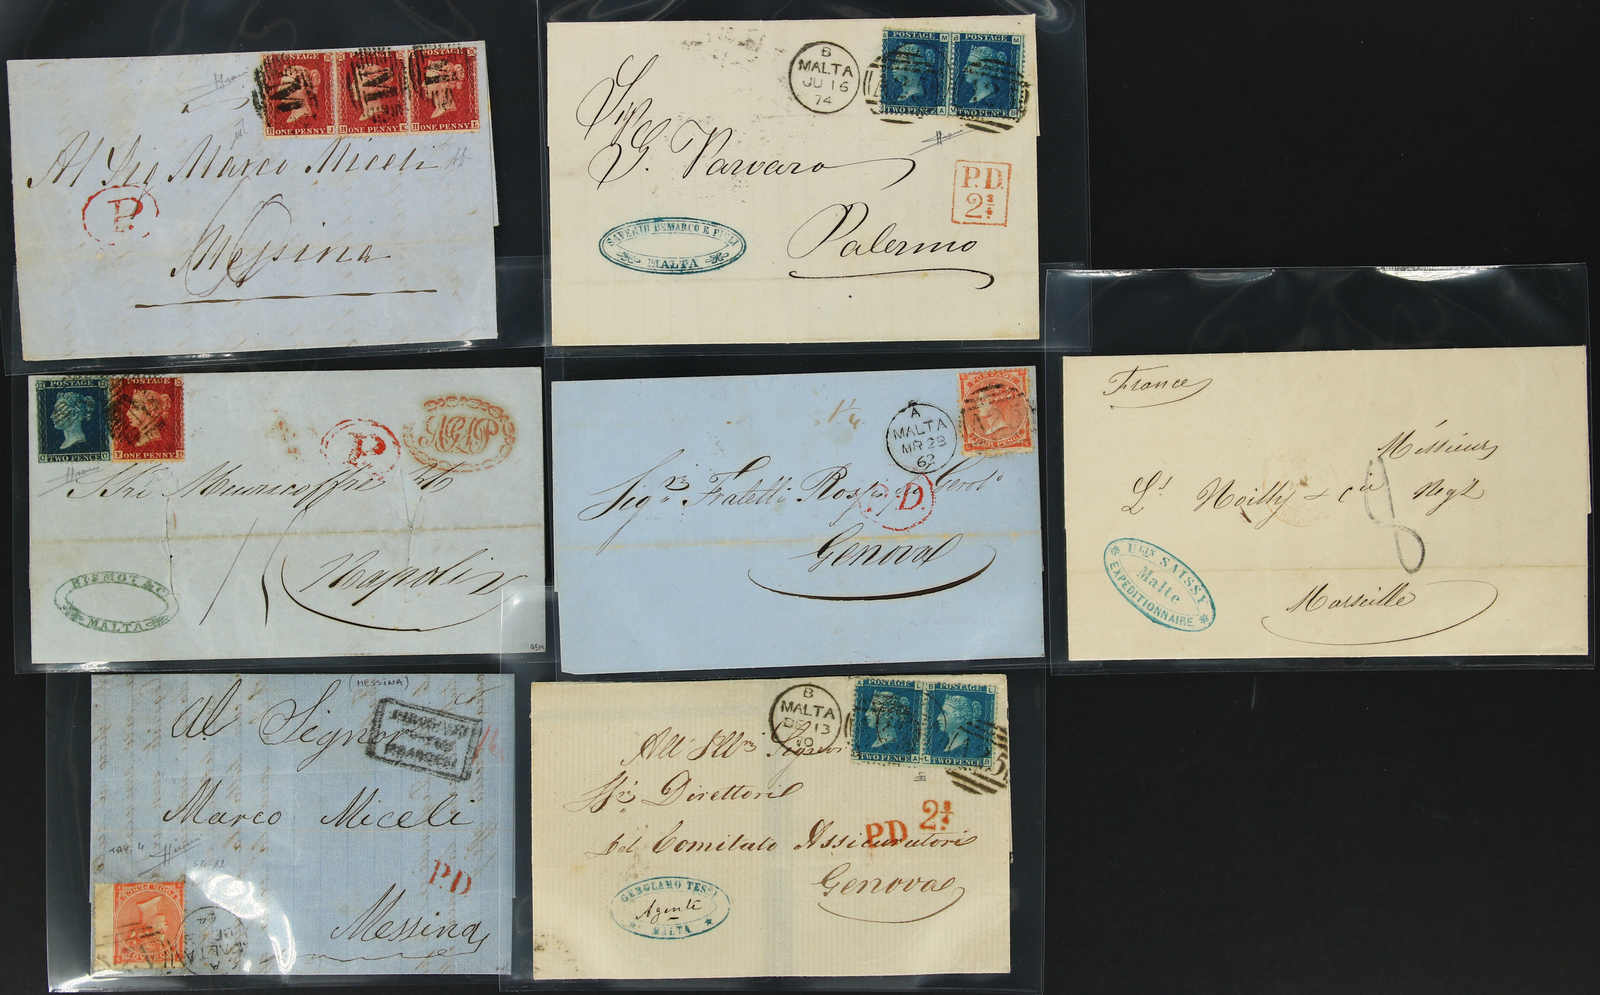 POSTAGE POSTAGE POSTAGE
ONE PENNY ONE PENNY ONE PENNY
M M M
Al Sig Marco Miceli
P.
Messina
POSTAGE POSTAGE
TWO PENCE TWO PENCE
B
MALTA
JU 16
74
Sig
G. Varvaro
P.D.
2 3/4
SAVERIO DEMARCO E FIGLI
MALTA
Palermo
POSTAGE
TWO PENCE ONE PENNY
P.
AGDP
Meuricoffre
MALTA
Napoli
A
MALTA
MR 28
62
1 1/4
Sig.ri Fratelli
P.D.
Genova
France
Messieurs
Ls Noilly & Cie Negt
8
ULIX SAISSY
Malte
EXPÉDITIONNAIRE
Marseille
(MESSINA)
Al Signor
Marco Miceli
TAV. 4
P.D
A
MALTA
Messina
B
MALTA
DE 13
70
POSTAGE POSTAGE
TWO PENCE TWO PENCE
All' Ill.mi Signori
Direttori
P.D 2 3/4
del Comitato Assicuratori
Genova
GEROLAMO TESSI
Agente
MALTA